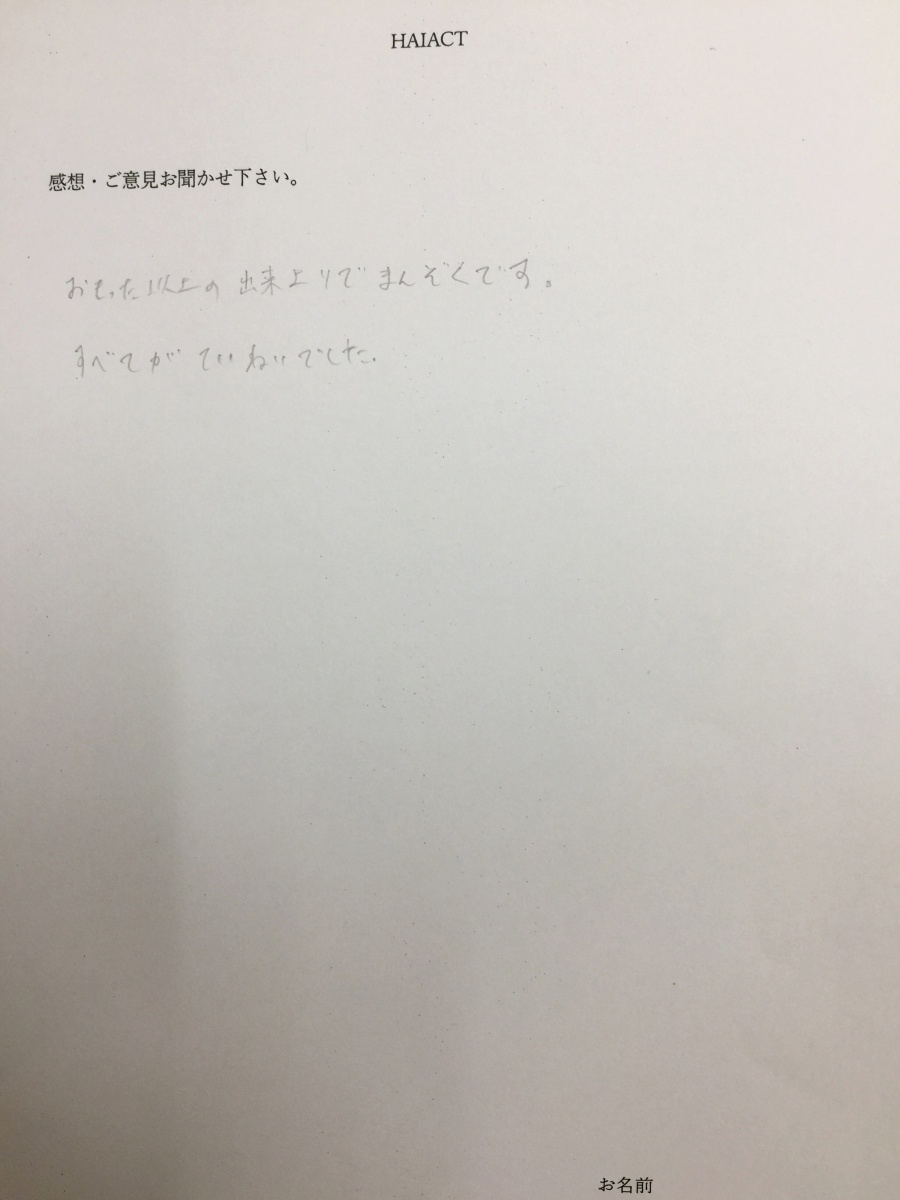 HAIACT
感想・ご意見お聞かせ下さい。
おもった以上の出来上りでまんぞくです。
すべてがていねいでした.
お名前